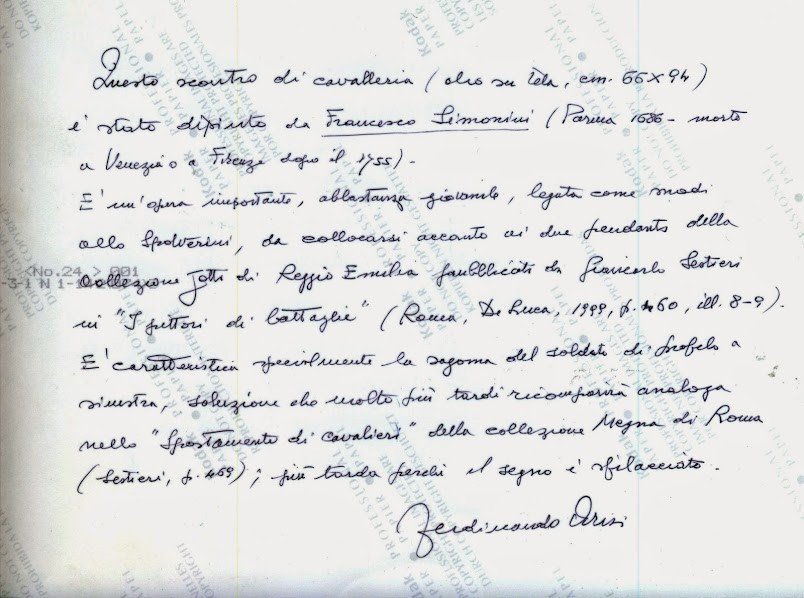 Questo scontro di cavalleria (olio su tela, cm. 66 x 94)
è stato dipinto da Francesco Simonini (Parma 1686 - morto
a Venezia o a Firenze dopo il 1755).
E' un'opera importante, abbastanza giovanile, legata come modi
allo Spolverini, da collocarsi accanto ai due pendants della
collezione Jotti di Reggio Emilia pubblicati da Giancarlo Sestieri
in "I pittori di battaglie" (Roma, De Luca, 1999, p. 460, ill. 8-9).
E' caratteristica specialmente la sagoma del soldato di profilo a
sinistra, soluzione che molto più tardi ricomparirà analoga
nello "Spostamento di cavalieri" della collezione Megna di Roma
(Sestieri, p. 469); più tarda perché il segno è sfilacciato.
Ferdinando Arisi
<No.24 > 001
-3-1 N 1-1
Kodak
PROFESSIONAL
PAPER
PAPEL